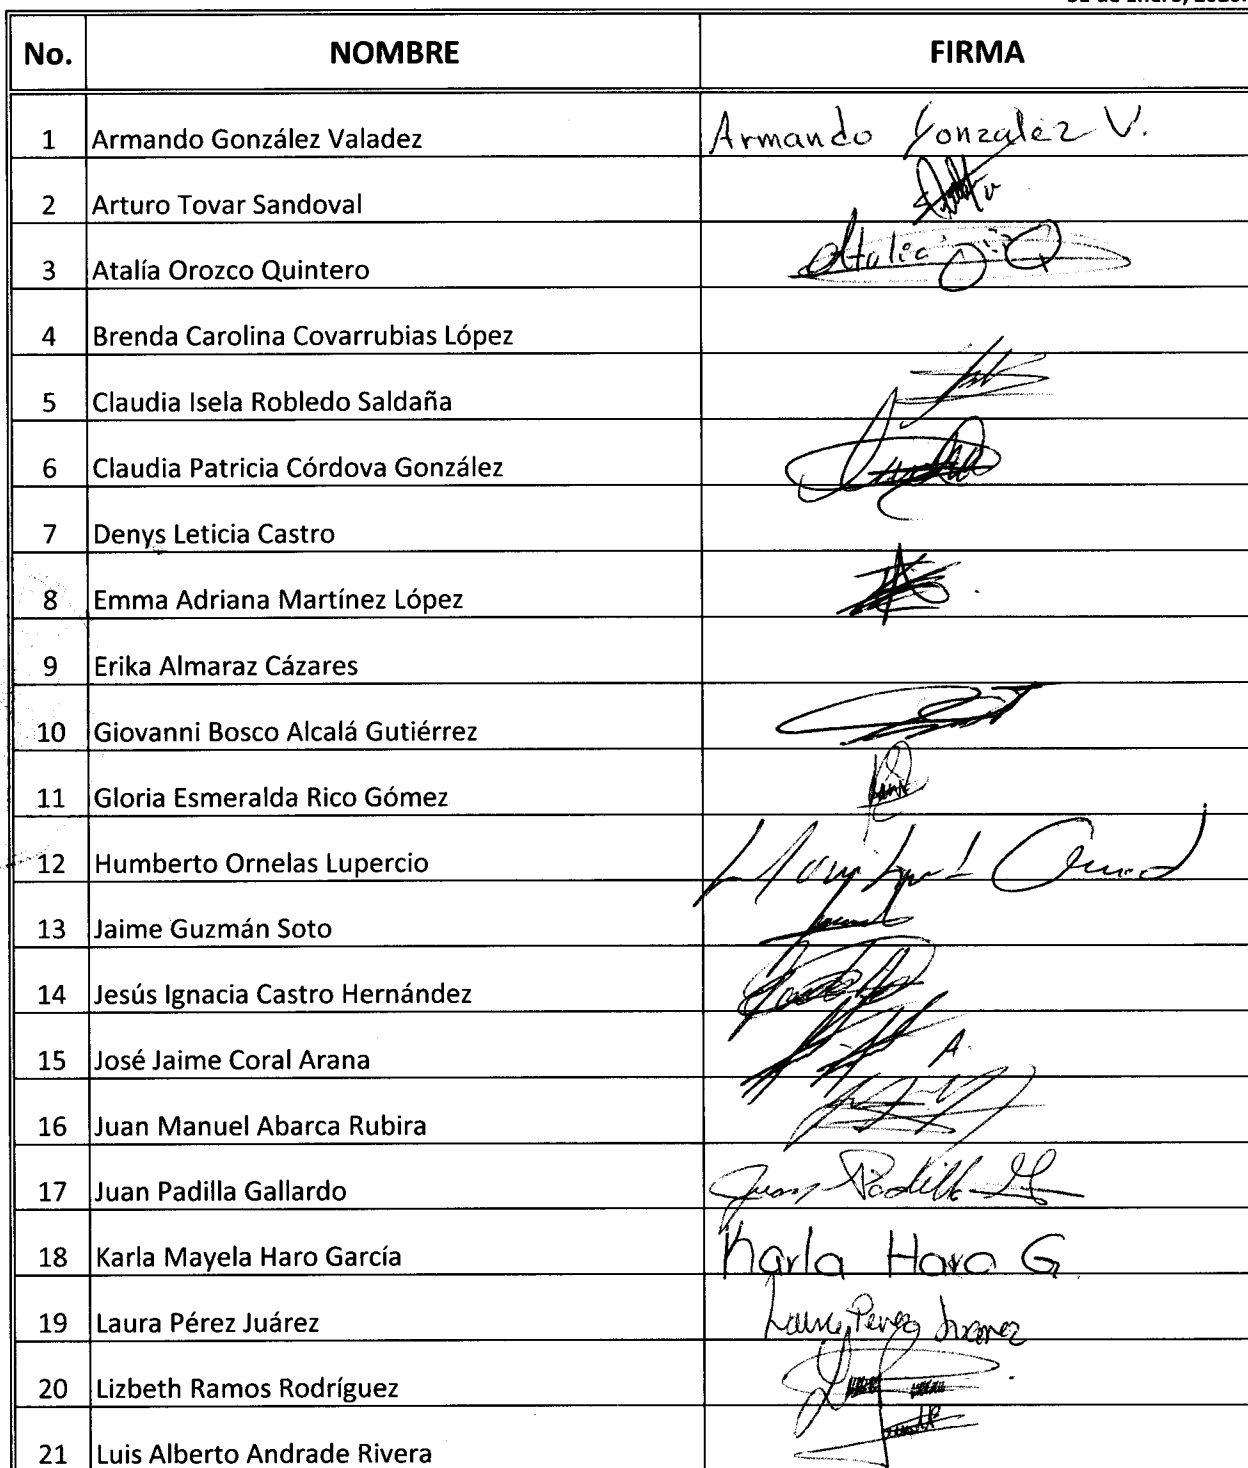 No. NOMBRE FIRMA
1 Armando González Valadez Armando Gonzalez V.
2 Arturo Tovar Sandoval
3 Atalía Orozco Quintero Atalia
4 Brenda Carolina Covarrubias López
5 Claudia Isela Robledo Saldaña
6 Claudia Patricia Córdova González
7 Denys Leticia Castro
8 Emma Adriana Martínez López
9 Erika Almaraz Cázares
10 Giovanni Bosco Alcalá Gutiérrez
11 Gloria Esmeralda Rico Gómez
12 Humberto Ornelas Lupercio
13 Jaime Guzmán Soto
14 Jesús Ignacia Castro Hernández
15 José Jaime Coral Arana A.
16 Juan Manuel Abarca Rubira
17 Juan Padilla Gallardo Juan Padilla G
18 Karla Mayela Haro García Karla Haro G.
19 Laura Pérez Juárez Laura Perez Juarez
20 Lizbeth Ramos Rodríguez
21 Luis Alberto Andrade Rivera